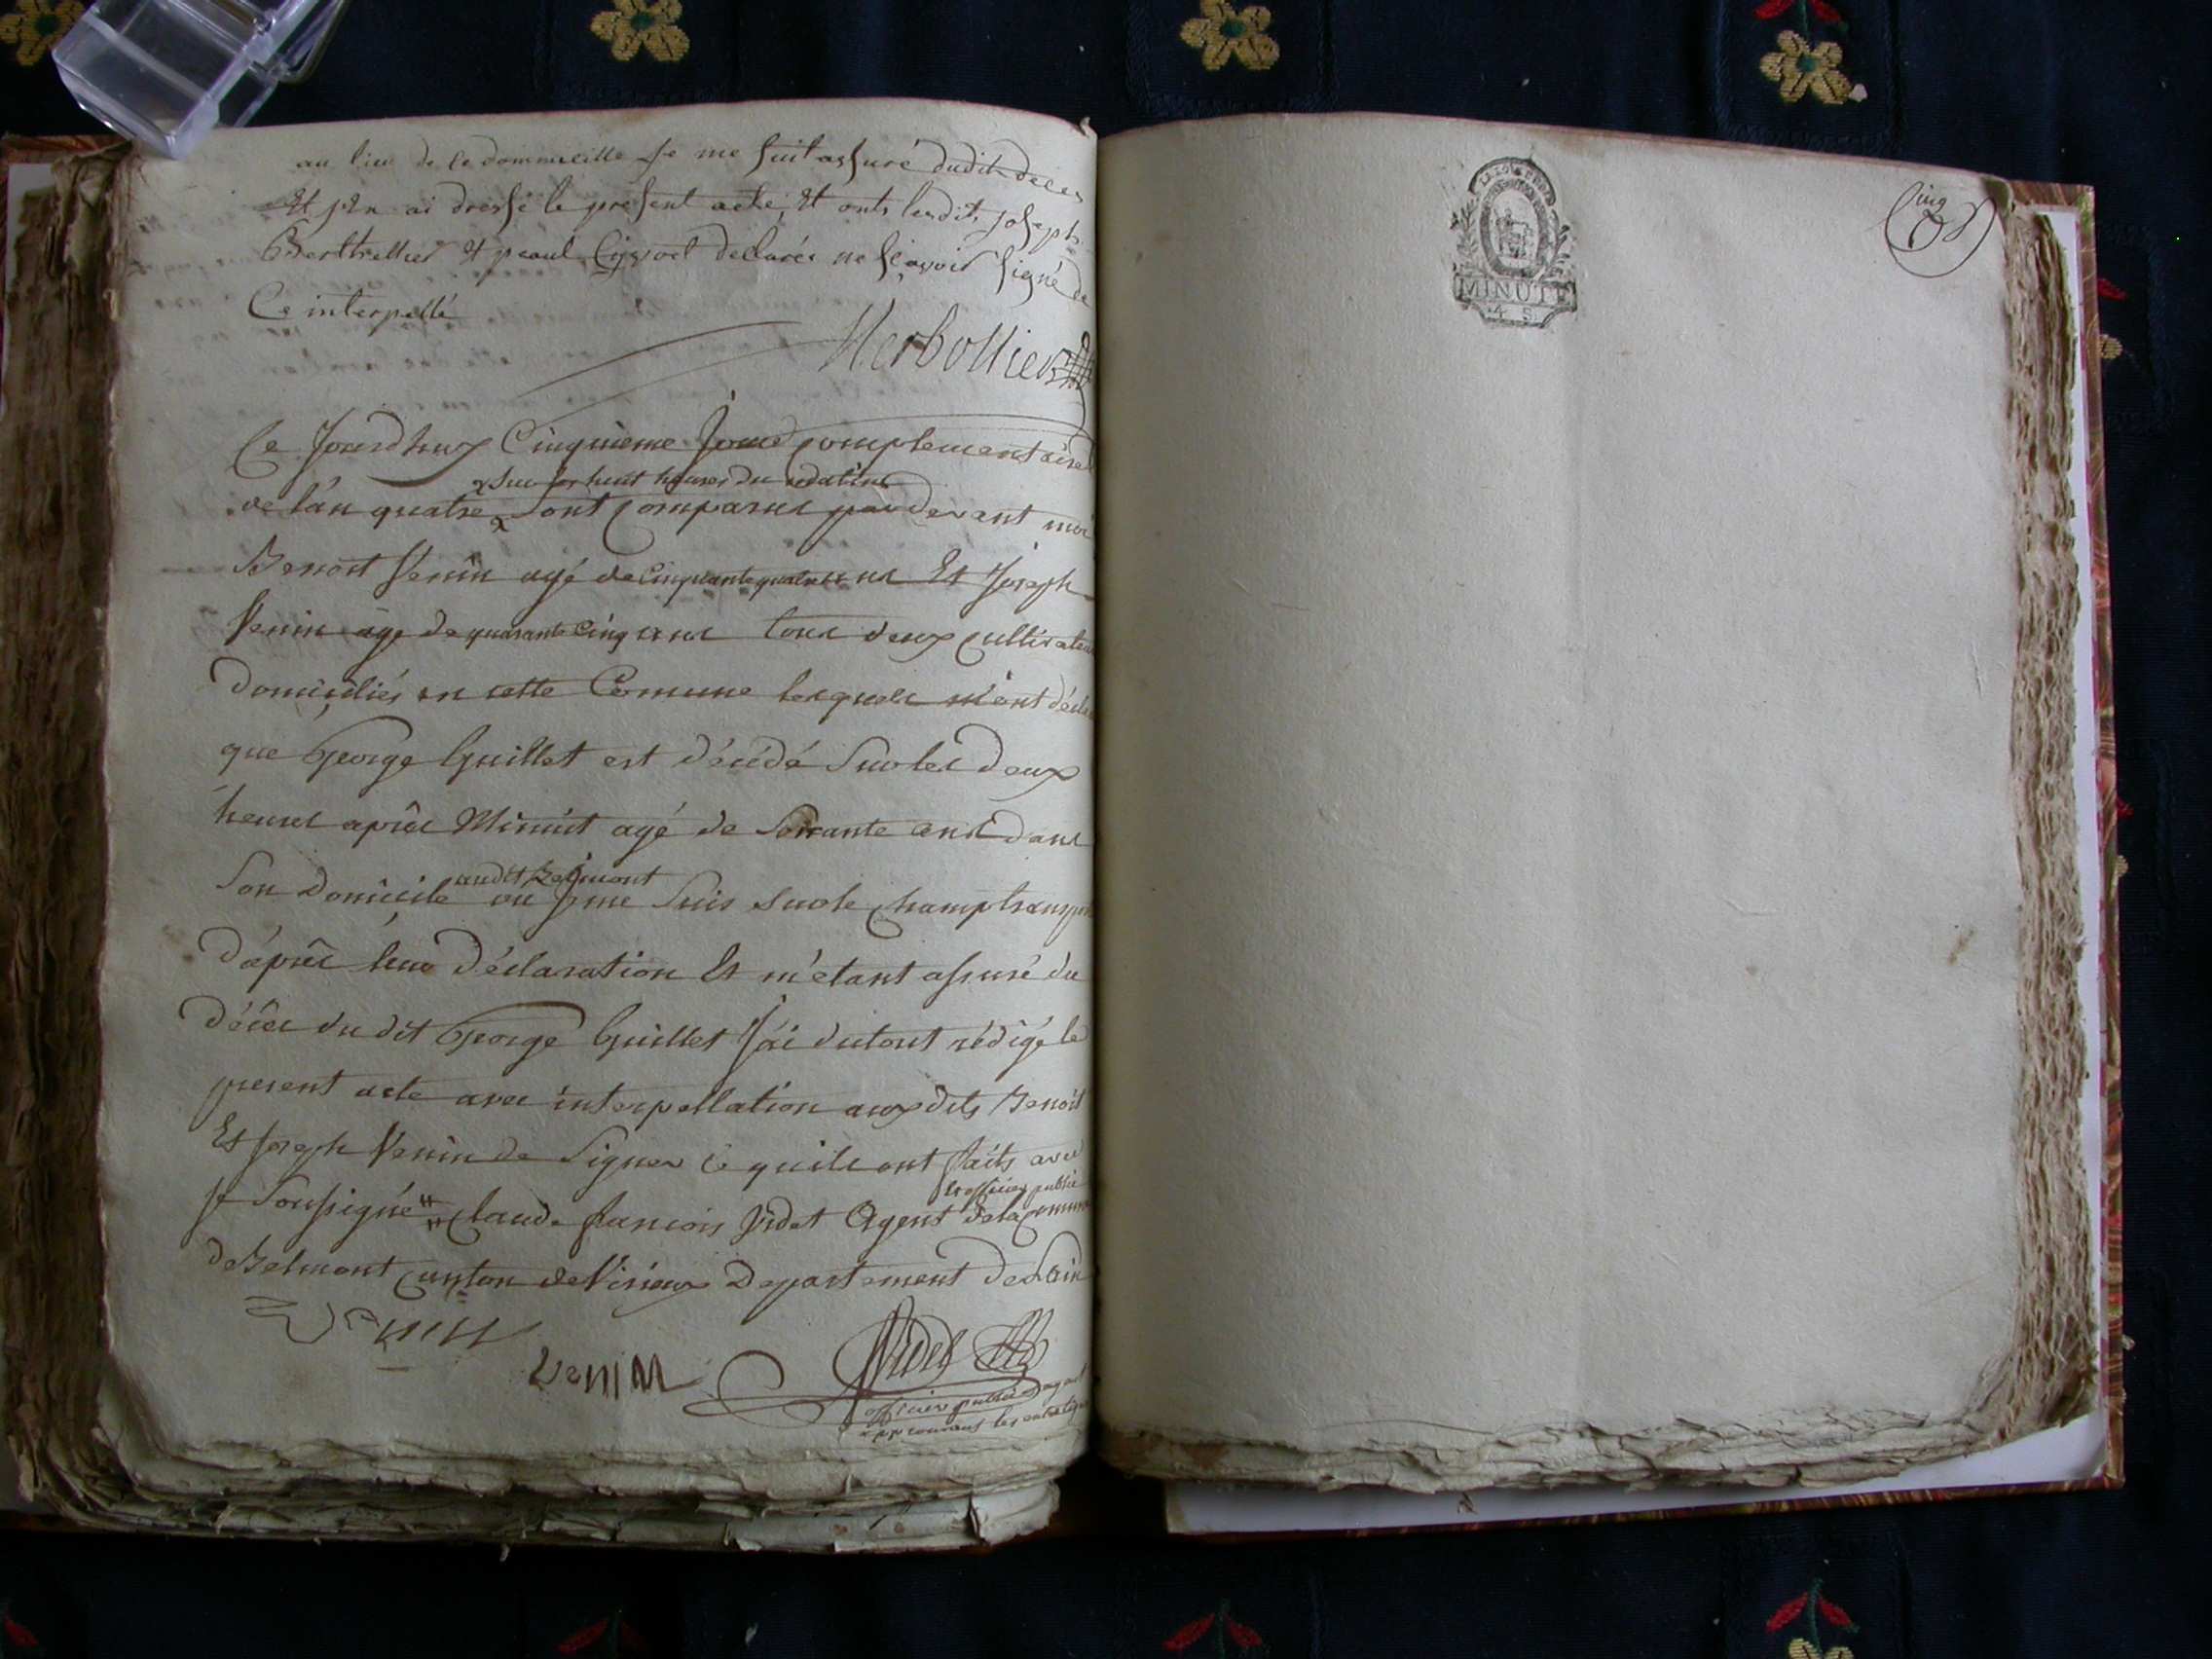 au lieu de le dommicille Je me suit assuré dudit deces
Et jEn ai dressé le present acte, Et onts lesdits joseph
Berthellier Et peaul declarés ne sçavoir signé de
Ce interpellé
Herbollier
Ce Jourdhuy Cinquieme Jour complementaire
x sur les huit heures du matin
de l'an quatre x sont comparus pardevant moi
Benoit Venin agé de cinquante quatre ans Et Joseph
Venin age de quarante cinq ans tous deux cultivateur
Domiciliés en cette Comune lesquels m'ont décla
que George Guillet est décédé sur les deux
heures après Minuit agé de soixante ans dans
audit Belmont
son domicile ou je me suis sur le champ transpor
d'après leur déclaration Et m'etant assuré du
décès du dit George Guillet j'ai du tout rédigé le
present acte avec interpellation auxdits Benoit
Et Joseph Venin de signer ce quils ont faits avec
et officier public
je soussigné claude francois Videt Agent dela comune
de Belmont canton de Virieux Departement de Lain
Venin
VeniN
Videt
officier public agent
approuvant les
MINUTE
4 S.
cinq